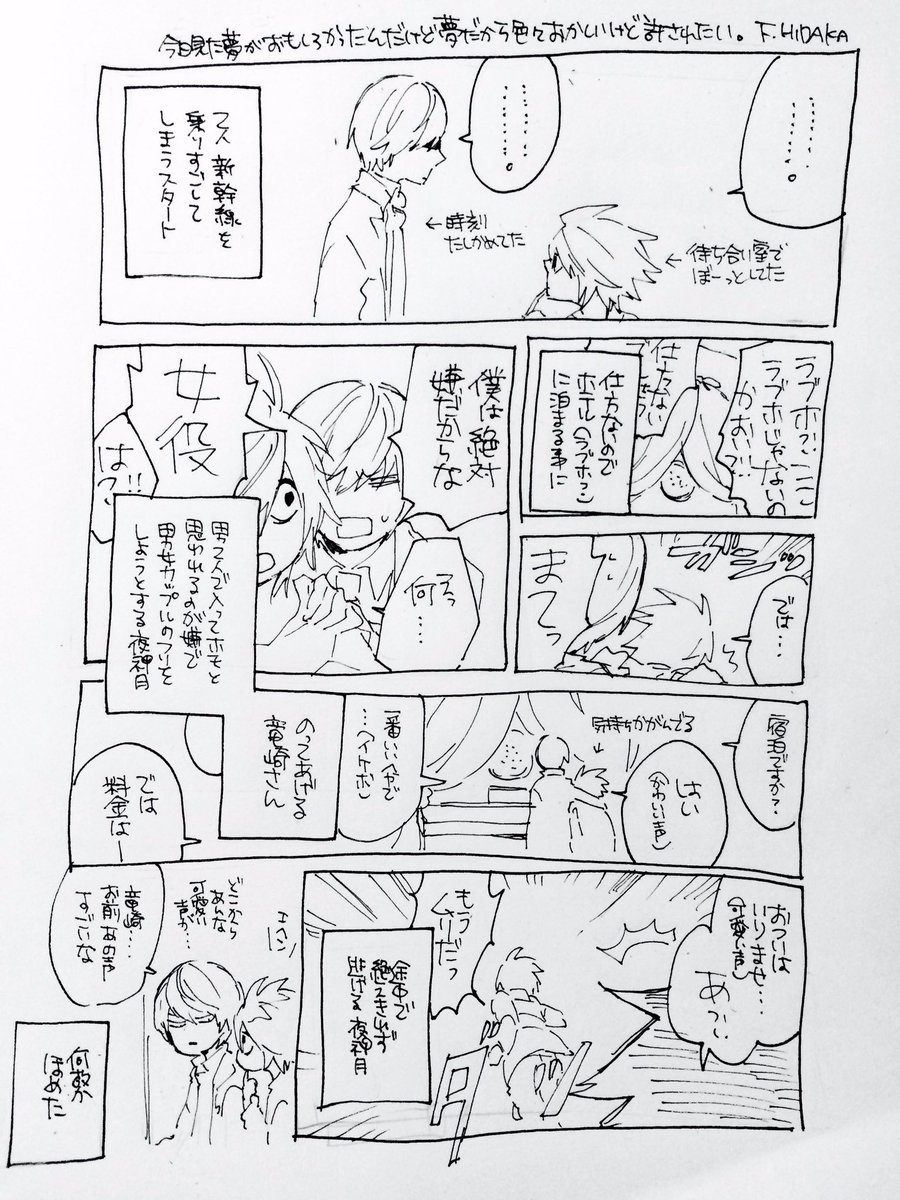 今日見た夢がおもしろかったんだけど夢だから色々おかしいけど許されたい。 F.HIDAKA
………。
………。
←待ち合い室で
ぼーっとしてた
←時刻
たしかめてた
2人 新幹線を
乗りすごして
しまうスタート
ラブホ?ここ
ラブホじゃないの
かおい!?
仕方ない
でしょう
仕方ないので
ホテル(ラブホ?)
に泊まる事に
では…
まてっ
僕は絶対
嫌だからな
そっ
何…
女役
はっ!!
男2人で入ってホモと
思われるのが嫌で
男女カップルのフリを
しようとする夜神月
宿泊ですか?
はい
(かわいい声)
気持ちかがんでる
一番いい部屋で
…(イケボ)
のってあげる
竜崎さん
では
料金はー
おつりは
いりませ…
(可愛い声)
あっ
もう
ムリだっ
ダッ
途中で
絶えきれず
逃げる夜神月
エヘン
どこから
あんな
可愛い
声が…
竜崎…
お前あの声
すごいな
何故か
ほめた